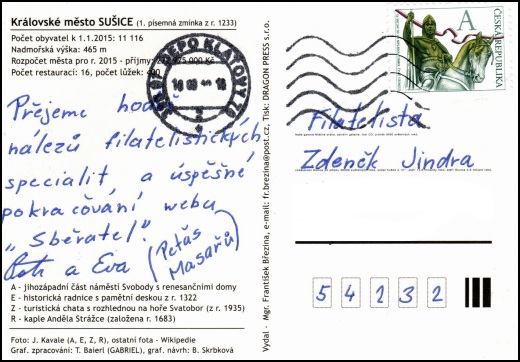 Královské město SUŠICE (1. písemná zmínka z r. 1233)
Počet obyvatel k 1.1.2015: 11 116
Nadmořská výška: 465 m
Rozpočet města pro r. 2015 - příjmy: 000 Kč
Počet restaurací: 16, počet lůžek:
DEPO KLATOVY 70
Přejeme hodně
nálezů filatelistických
specialit, a úspěšné
pokračování webu
„Sběratel".
Petr a Eva (Petăš
Masařů)
A - jihozápadní část náměstí Svobody s renesančními domy
E - historická radnice s pamětní deskou z r. 1322
Z - turistická chata s rozhlednou na hoře Svatobor (z r. 1935)
R - kaple Anděla Strážce (založena r. 1683)
Foto: J. Kavale (A, E, Z, R), ostatní foto - Wikipedie
Graf. zpracování: T. Baierl (GABRIEL), graf. návrh: B. Skrbková
Vydal - Mgr. František Březina, e-mail: fr.brezina@post.cz, Tisk: DRAGON PRESS s.r.o.
A
ČESKÁ REPUBLIKA
Filatelista
Zdeněk Jindra
54232